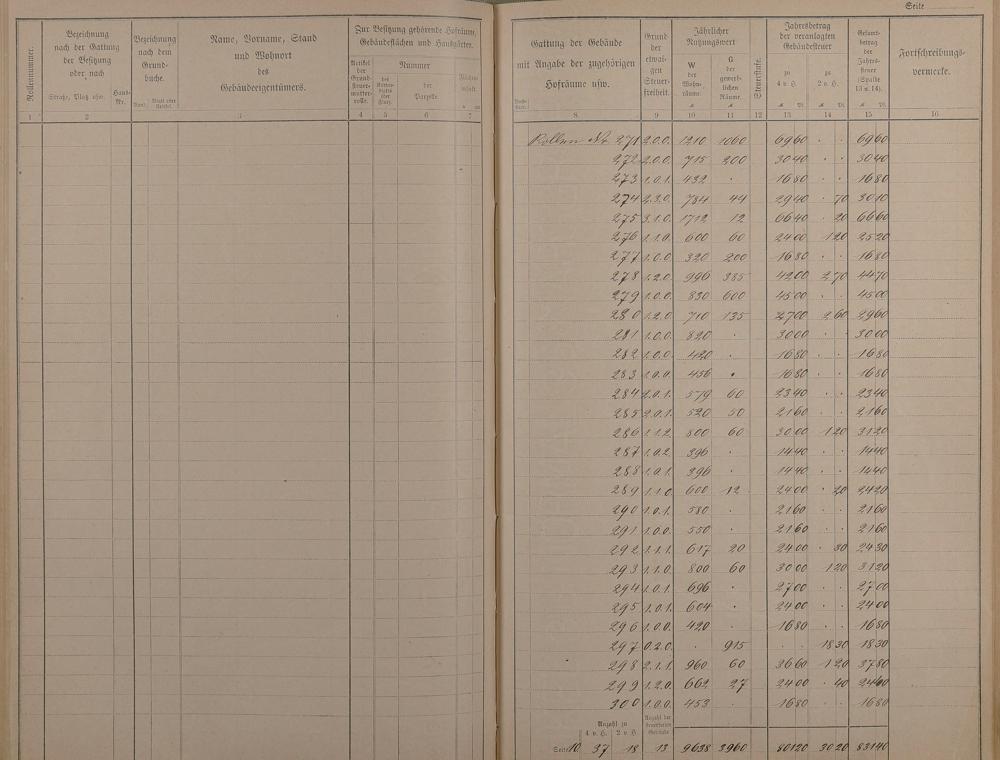 Seite
Rollennummer.
Bezeichnung
nach der Gattung
der Besitzung
oder nach
Straße, Platz usw.
Haus-
Nr.
Bezeichnung
nach dem
Grund-
buche.
Band.
Blatt oder
Artikel.
Name, Vorname, Stand
und Wohnort
des
Gebäudeeigentümers.
Zur Besitzung gehörende Hofräume,
Gebäudeflächen und Hausgärten.
Artikel
der
Grund-
steuer-
mutter-
rolle.
Nummer
des
Karten-
blatts
oder
Flur.
der
Parzelle.
Flächen-
inhalt.
Gattung der Gebäude
mit Angabe der zugehörigen
Hofräume usw.
Grund
der
etwai-
gen
Steuer-
freiheit.
Jährlicher
Nutzungswert
W
der
Wohn-
räume.
G
der
gewerb-
lichen
Räume.
Steuerstufe.
Jahresbetrag
der veranlagten
Gebäudesteuer
zu
4 v. H.
zu
2 v. H.
Gesamt-
betrag
der
Jahres-
steuer
(Spalte
13 u. 14).
Fortschreibungs-
vermerke.
1 2 3 4 5 6 7 8 9 10 11 12 13 14 15 16
Rollen Nr 271 2.0.0. 1210 1060 6960 . . 6960
272 2.0.0. 715 200 3040 . . 3040
273 1.0.1. 432 . 1680 . . 1680
274 2.3.0. 784 44 2940 . 70 3010
275 3.1.0. 1712 12 6640 . 20 6660
276 1.1.0. 600 60 2400 120 2520
277 1.0.0. 320 200 1680 . . 1680
278 1.2.0. 996 385 4200 270 4470
279 1.0.0. 830 600 4500 . . 4500
280 1.2.0. 710 135 2700 260 2960
281 1.0.0. 820 . 3000 . . 3000
282 1.0.0. 420 . 1680 . . 1680
283 1.0.0. 456 . 1680 . . 1680
284 2.0.1. 579 60 2340 . . 2340
285 2.0.1. 520 50 2160 . . 2160
286 1.1.2. 800 60 3000 120 3120
287 1.0.2. 396 . 1440 . . 1440
288 1.0.1. 396 . 1440 . . 1440
289 1.1.0. 600 12 2400 . 20 2420
290 1.0.1. 580 . 2160 . . 2160
291 1.0.0. 550 . 2160 . . 2160
292 1.1.1. 617 20 2400 . 30 2430
293 1.1.0. 800 60 3000 120 3120
294 1.0.1. 696 . 2700 . . 2700
295 1.0.1. 604 . 2400 . . 2400
296 1.0.0. 420 . 1680 . . 1680
297 0.2.0. . 915 . . 1830 1830
298 2.1.1. 960 60 3660 120 3780
299 1.2.0. 662 27 2400 . 40 2440
300 1.0.0. 453 . 1680 . . 1680
Anzahl zu
4 v. H. 2 v. H.
Anzahl der
steuerfreien
Gebäude
Seite 10 37 18 13 9638 3960 80120 3020 83140